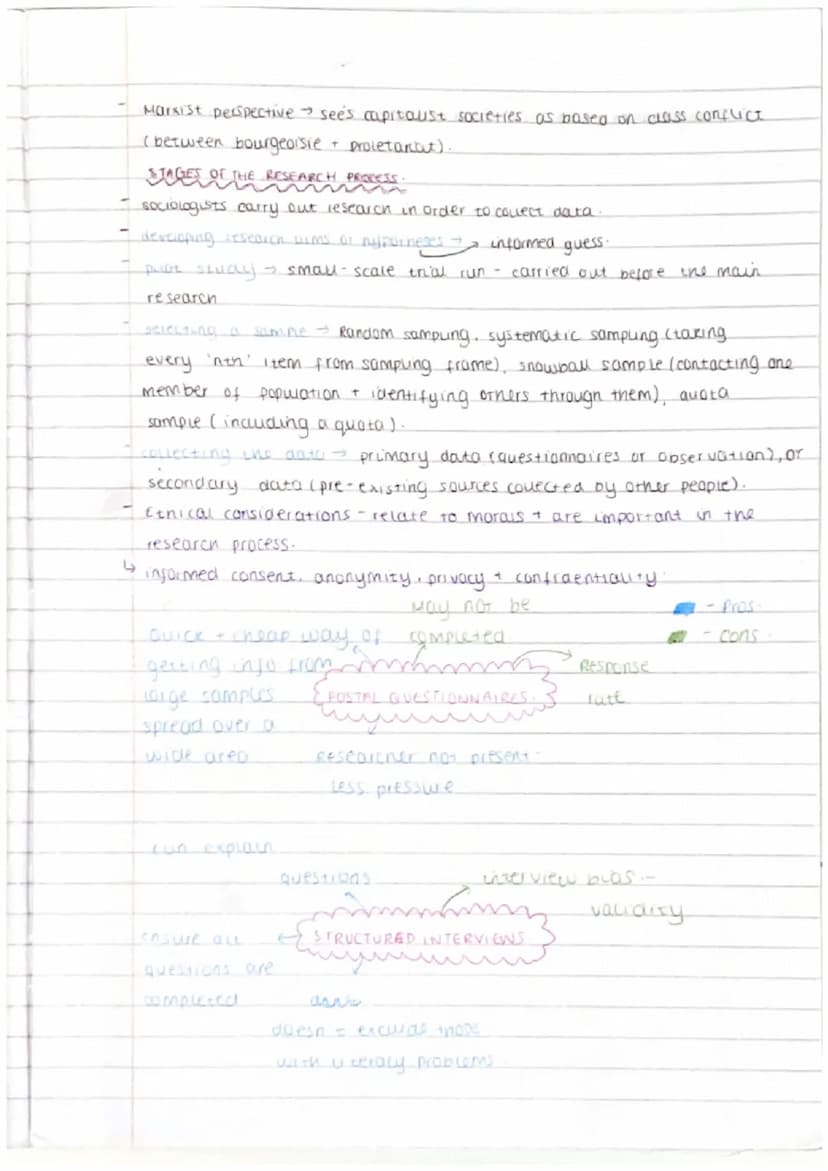 - Marxist perspective → sees capitalist societies as based on class conflict
(between bourgeoisie + proletariat).
STAGES OF THE RESEARCH PROCESS.
- sociologists carry out research in order to collect data.
- developing research aims or hypotheses → informed guess.
- pilot study → small-scale trial run - carried out before the main
research
- selecting a sample → Random sampling, systematic sampling (taking
every 'nth' item from sampling frame), snowball sample (contacting one
member of population + identifying others through them), quota
sample (including a quota).
- collecting the data → primary data (questionnaires or observation), or
secondary data (pre-existing sources collected by other people).
- Ethical considerations - relate to morals + are important in the
research process.
↳ informed consent, anonymity, privacy + confidentiality
- Pros.
- cons.
May not be
completed
Quick + cheap way of
getting info from
large samples
spread over a
wide area
Response
rate
POSTAL QUESTIONNAIRES.
Researcher not present -
less pressure
can explain
questions
interview bias -
validity
STRUCTURED INTERVIEWS
ensure all
questions are
completed
doesn't exclude those
with literacy problems